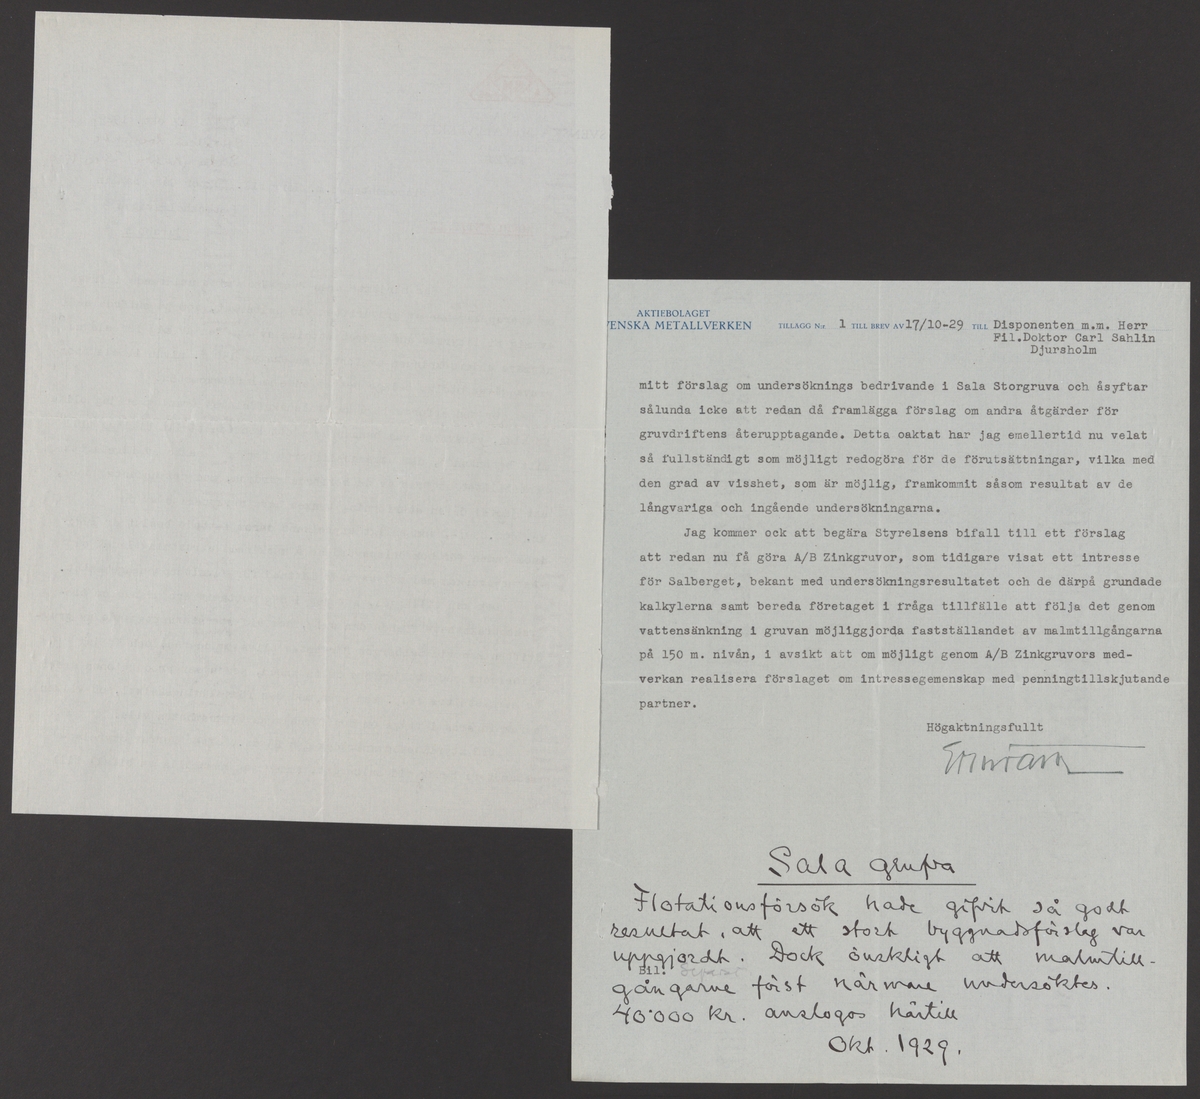 AKTIEBOLAGET
VENSKA METALLVERKEN TILLÄGG N:r 1 TILL BREV AV 17/10-29 TILL Disponenten m.m. Herr
Fil.Doktor Carl Sahlin
Djursholm
mitt förslag om undersöknings bedrivande i Sala Storgruva och åsyftar
sålunda icke att redan då framlägga förslag om andra åtgärder för
gruvdriftens återupptagande. Detta oaktat har jag emellertid nu velat
så fullständigt som möjligt redogöra för de förutsättningar, vilka med
den grad av visshet, som är möjlig, framkommit såsom resultat av de
långvariga och ingående undersökningarna.
Jag kommer ock att begära Styrelsens bifall till ett förslag
att redan nu få göra A/B Zinkgruvor, som tidigare visat ett intresse
för Salberget, bekant med undersökningsresultatet och de därpå grundade
kalkylerna samt bereda företaget i fråga tillfälle att följa det genom
vattensänkning i gruvan möjliggjorda fastställandet av malmtillgångarna
på 150 m. nivån, i avsikt att om möjligt genom A/B Zinkgruvors med-
verkan realisera förslaget om intressegemenskap med penningtillskjutande
partner.
Högaktningsfullt
Sala grufva
Flotationsförsök hade gifvit så godt
resultat, att ett stort byggnadsförslag var
uppgjordt. Dock önskligt att malmtill-
Bil:
gångarne först närmare undersöktes.
40.000 kr. anslogos härtill
Okt. 1929.